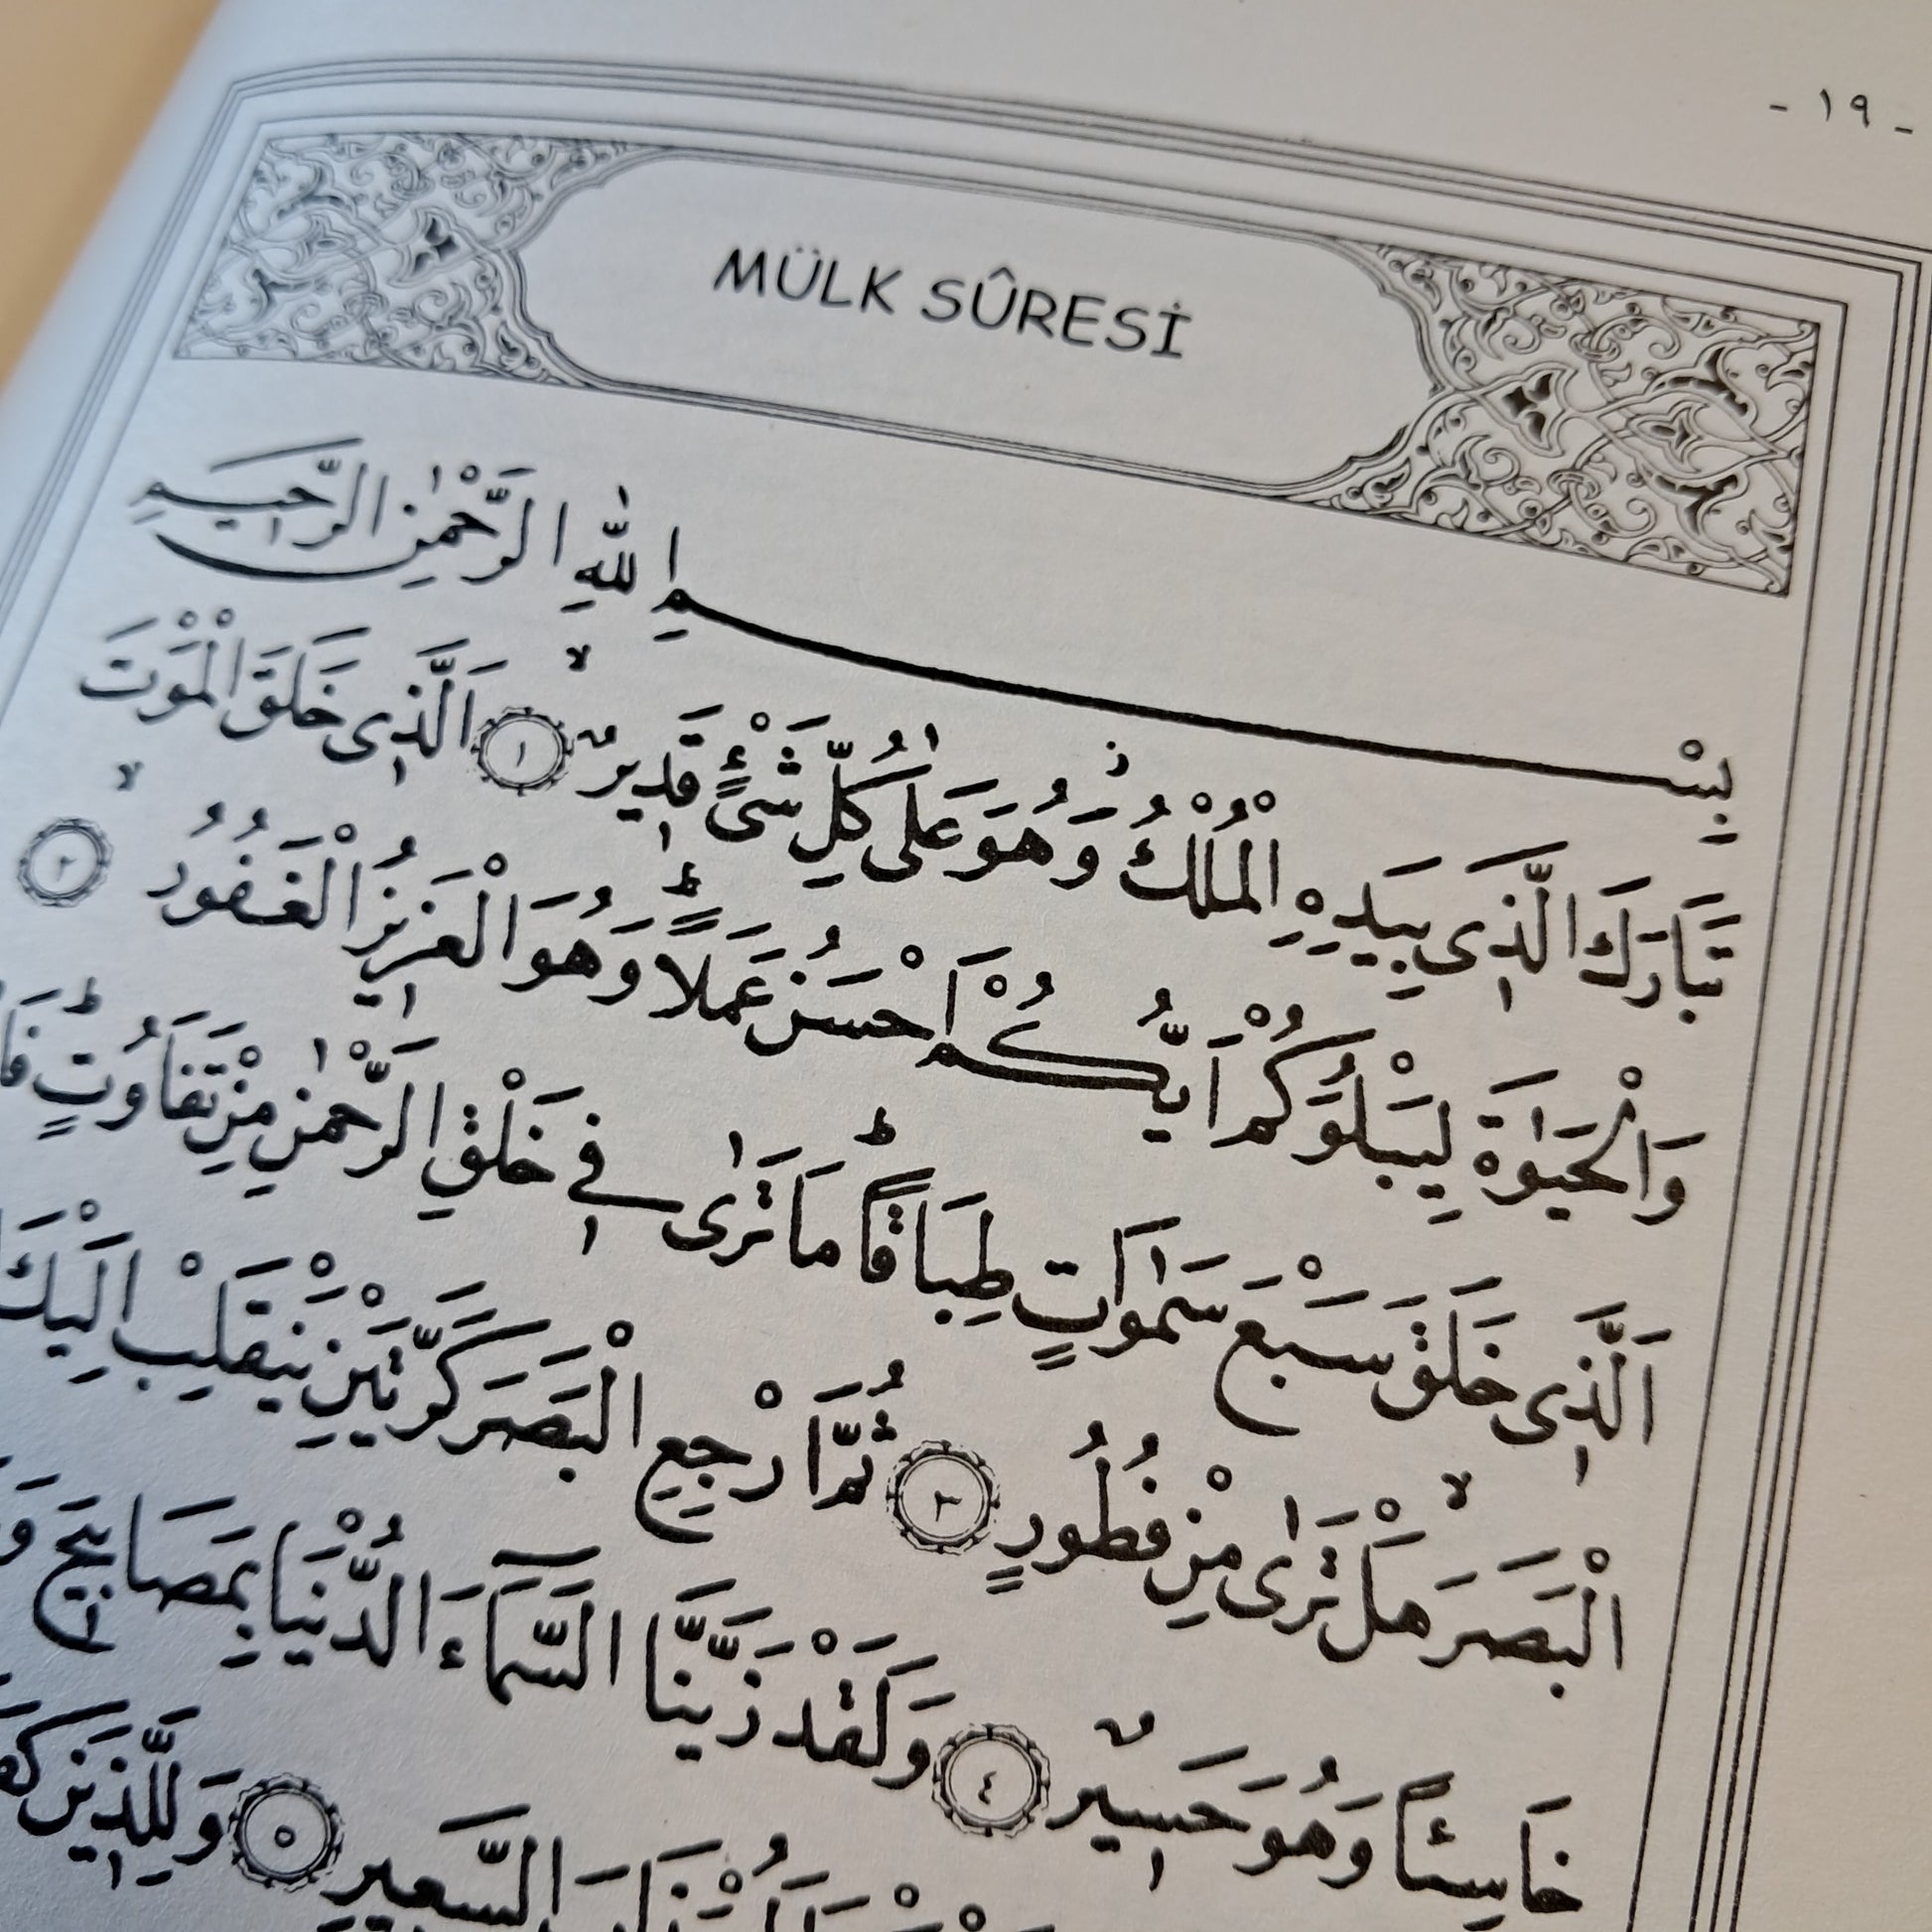 - ١٩ -
MÜLK SÛRESİ
بِسْمِ اللّٰهِ الرَّحْمٰنِ الرَّحٖيمِ
تَبَارَكَ الَّذٖى بِيَدِهِ الْمُلْكُ وَهُوَ عَلٰى كُلِّ شَىْءٍ قَدٖيرٌ ﴿١﴾ اَلَّذٖى خَلَقَ الْمَوْتَ
وَالْحَيٰوةَ لِيَبْلُوَكُمْ اَيُّكُمْ اَحْسَنُ عَمَلًا وَهُوَ الْعَزٖيزُ الْغَفُورُ ﴿٢﴾
اَلَّذٖى خَلَقَ سَبْعَ سَمٰوَاتٍ طِبَاقًا مَا تَرٰى فٖى خَلْقِ الرَّحْمٰنِ مِنْ تَفَاوُتٍ
الْبَصَرَ هَلْ تَرٰى مِنْ فُطُورٍ ﴿٣﴾ ثُمَّ ارْجِعِ الْبَصَرَ كَرَّتَيْنِ يَنْقَلِبْ اِلَيْكَ
خَاسِئًا وَهُوَ حَسٖيرٌ ﴿٤﴾ وَلَقَدْ زَيَّنَّا السَّمَٓاءَ الدُّنْيَا بِمَصَابٖيحَ
السَّعٖيرِ ﴿٥﴾ وَلِلَّذٖينَ